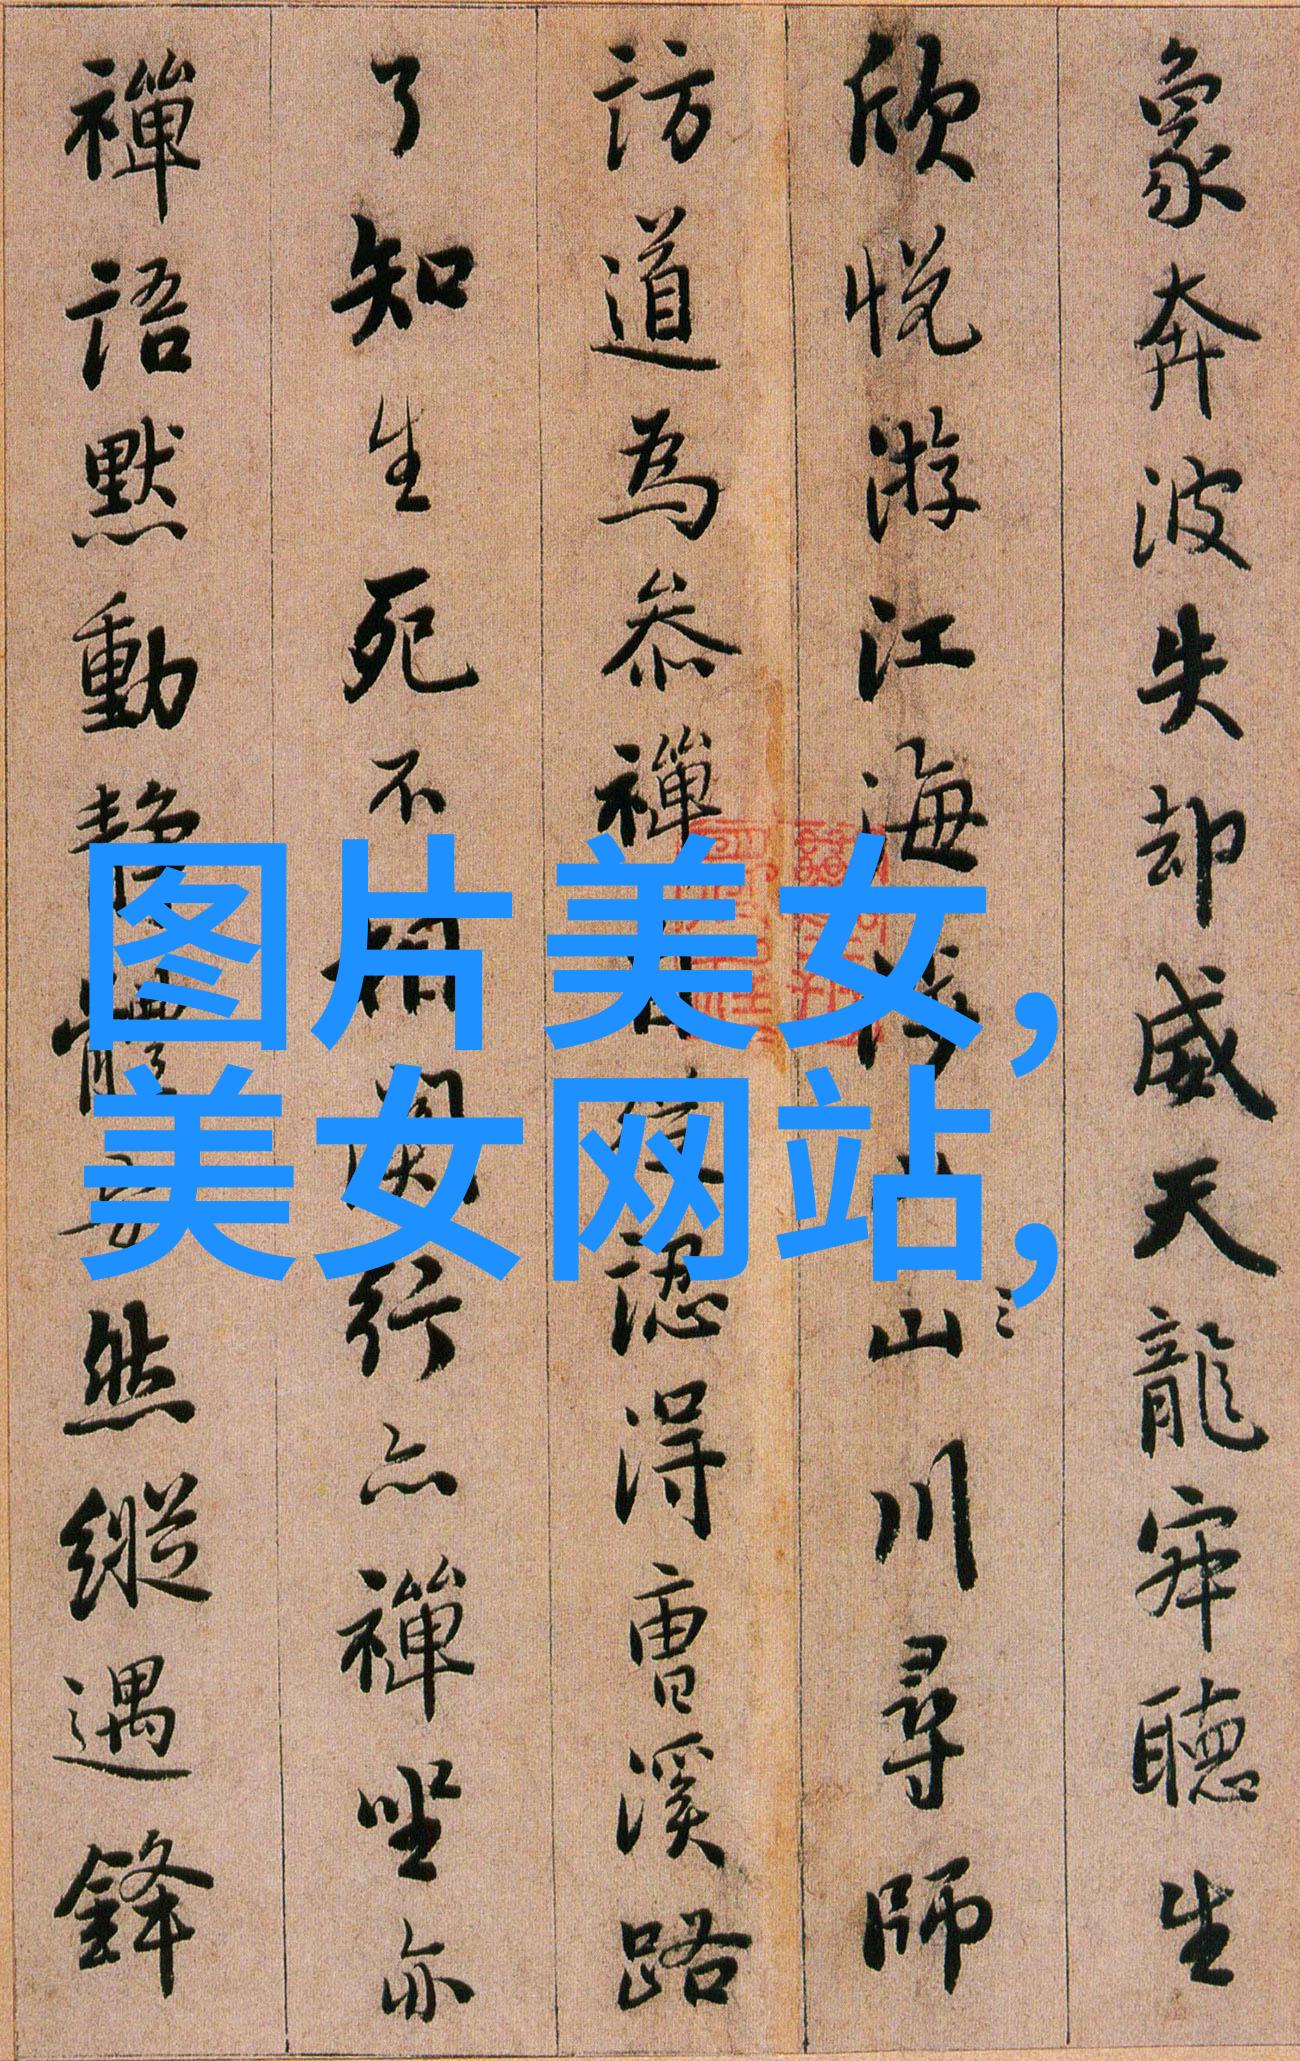 象奔波失却威天龍寂聽生
欣悅游江海涉山川尋師
訪道為參禪自從認得曹溪路
了知生死不相關行亦禪坐亦
禪語默動靜體安然縱遇鋒
图片美女,
美女网站,